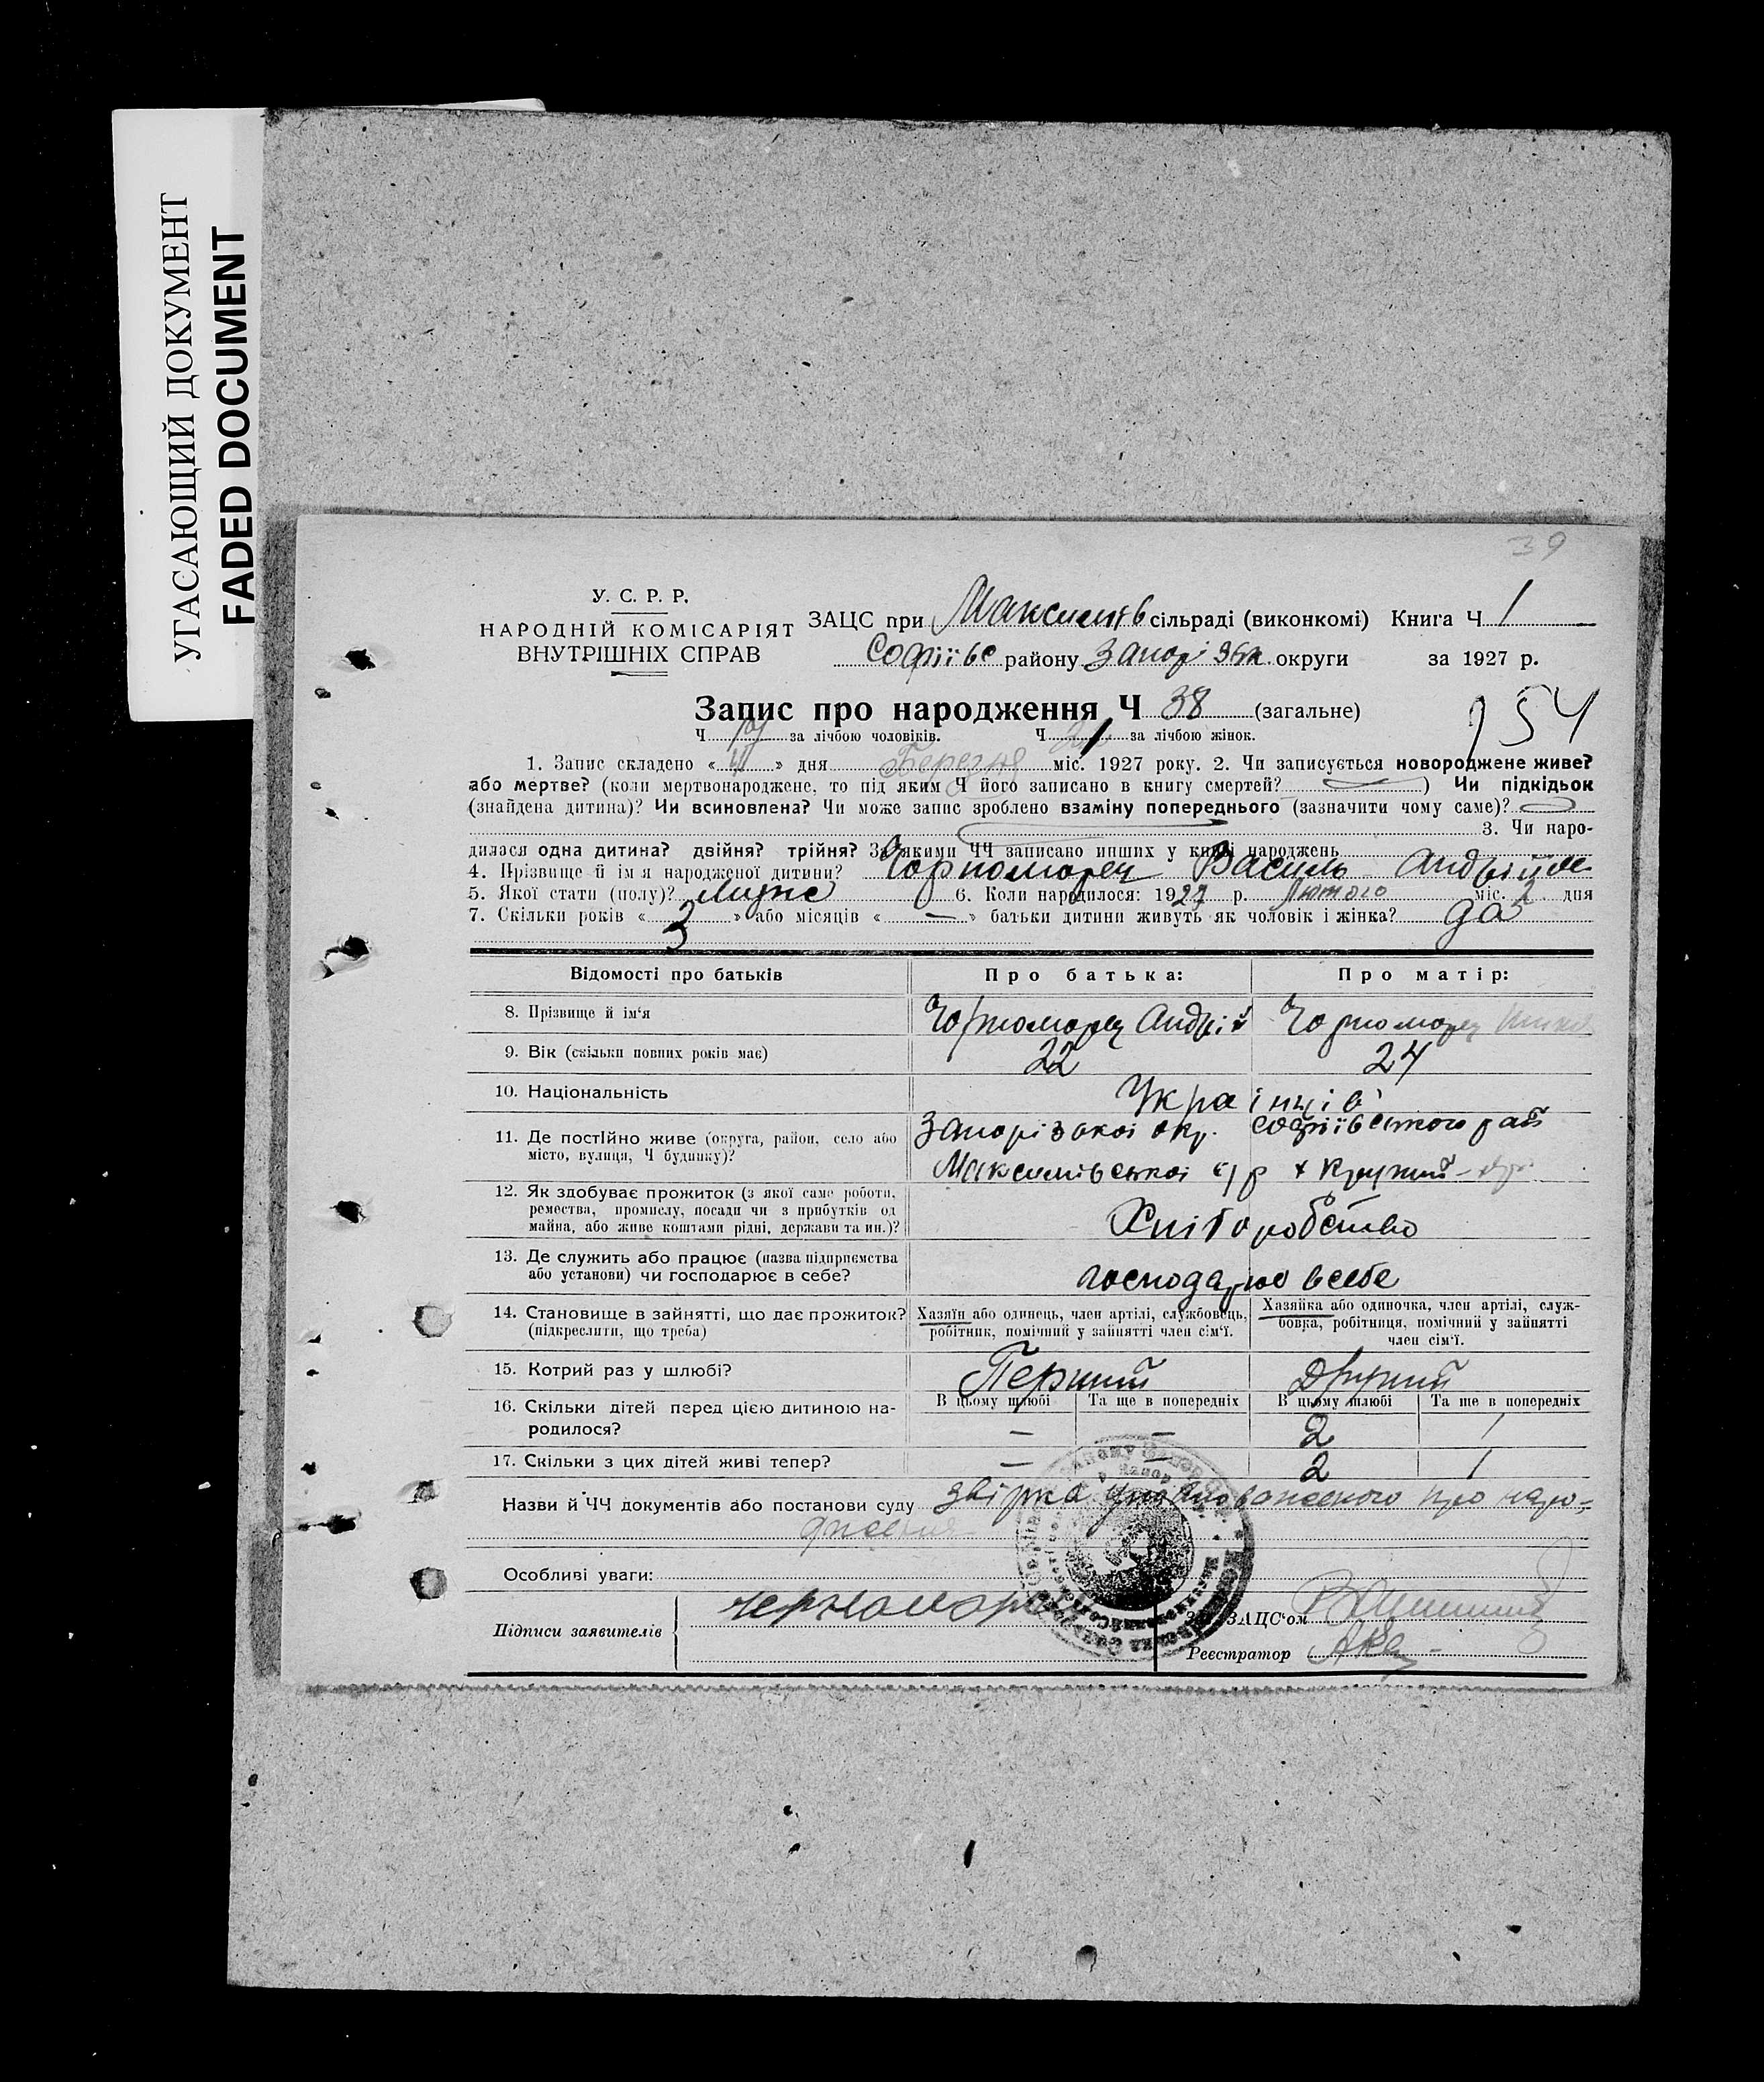 УГАСАЮЩИЙ ДОКУМЕНТ
FADED DOCUMENT
39
У. С. Р. Р.
НАРОДНІЙ КОМІСАРІЯТ
ВНУТРІШНІХ СПРАВ
ЗАЦС при Максимів сільраді (виконкомі) Книга Ч 1
Софіївс району Запорізьк. округи за 1927 р.
Запис про народження Ч 38 (загальне)
154
Ч за лічбою чоловіків. Ч за лічбою жінок.
1. Запис складено « 4 » дня Березня міс. 1927 року. 2. Чи записується новороджене живе?
або мертве? (коли мертвонароджене, то під яким Ч його записано в книгу смертей? ) Чи підкідьок
(знайдена дитина)? Чи всиновлена? Чи може запис зроблено взаміну попереднього (зазначити чому саме)?
3. Чи наро-
дилася одна дитина? двійня? трійня? За якими ЧЧ записано инших у книзі народжень
4. Прізвище й ім'я народженої дитини? Чорноморец Василь Андрійов
5. Якої стати (полу)? Муже 6. Коли народилося: 1927 р. Лютого міс. 2 дня
7. Скільки років « 3 » або місяців « — » батьки дитини живуть як чоловік і жінка? да
Відомості про батьків Про батька: Про матір:
8. Прізвище й ім'я Чорноморец Андрій Чорноморец
9. Вік (скільки повних років має) 22 24
10. Національність Українців
11. Де постійно живе (округа, район, село або місто, вулиця, Ч будинку)? Запорізької окр. Софіївського рай
Максимівської с/р х
12. Як здобуває прожиток (з якої саме роботи, ремества, промислу, посади чи з прибутків од майна, або живе коштами рідні, держави та ин.)? Хліборобство
13. Де служить або працює (назва підприємства або установи) чи господарює в себе? господарює всебе
14. Становище в зайнятті, що дає прожиток? (підкреслити, що треба) Хазяїн або одинець, член артілі, службовець, робітник, помічний у зайнятті член сім'ї. Хазяйка або одиночка, член артілі, службовка, робітниця, помічний у зайнятті член сім'ї.
15. Котрий раз у шлюбі? Перший Другий
В цьому шлюбі Та ще в попередніх В цьому шлюбі Та ще в попередніх
16. Скільки дітей перед цією дитиною народилося? — — 2 1
17. Скільки з цих дітей живі тепер? — — 2 1
Назви й ЧЧ документів або постанови суду звірка уповноваженого про наро-
дження
Особливі уваги:
Підписи заявителів черномор
Зав. ЗАЦС'ом
Реєстратор